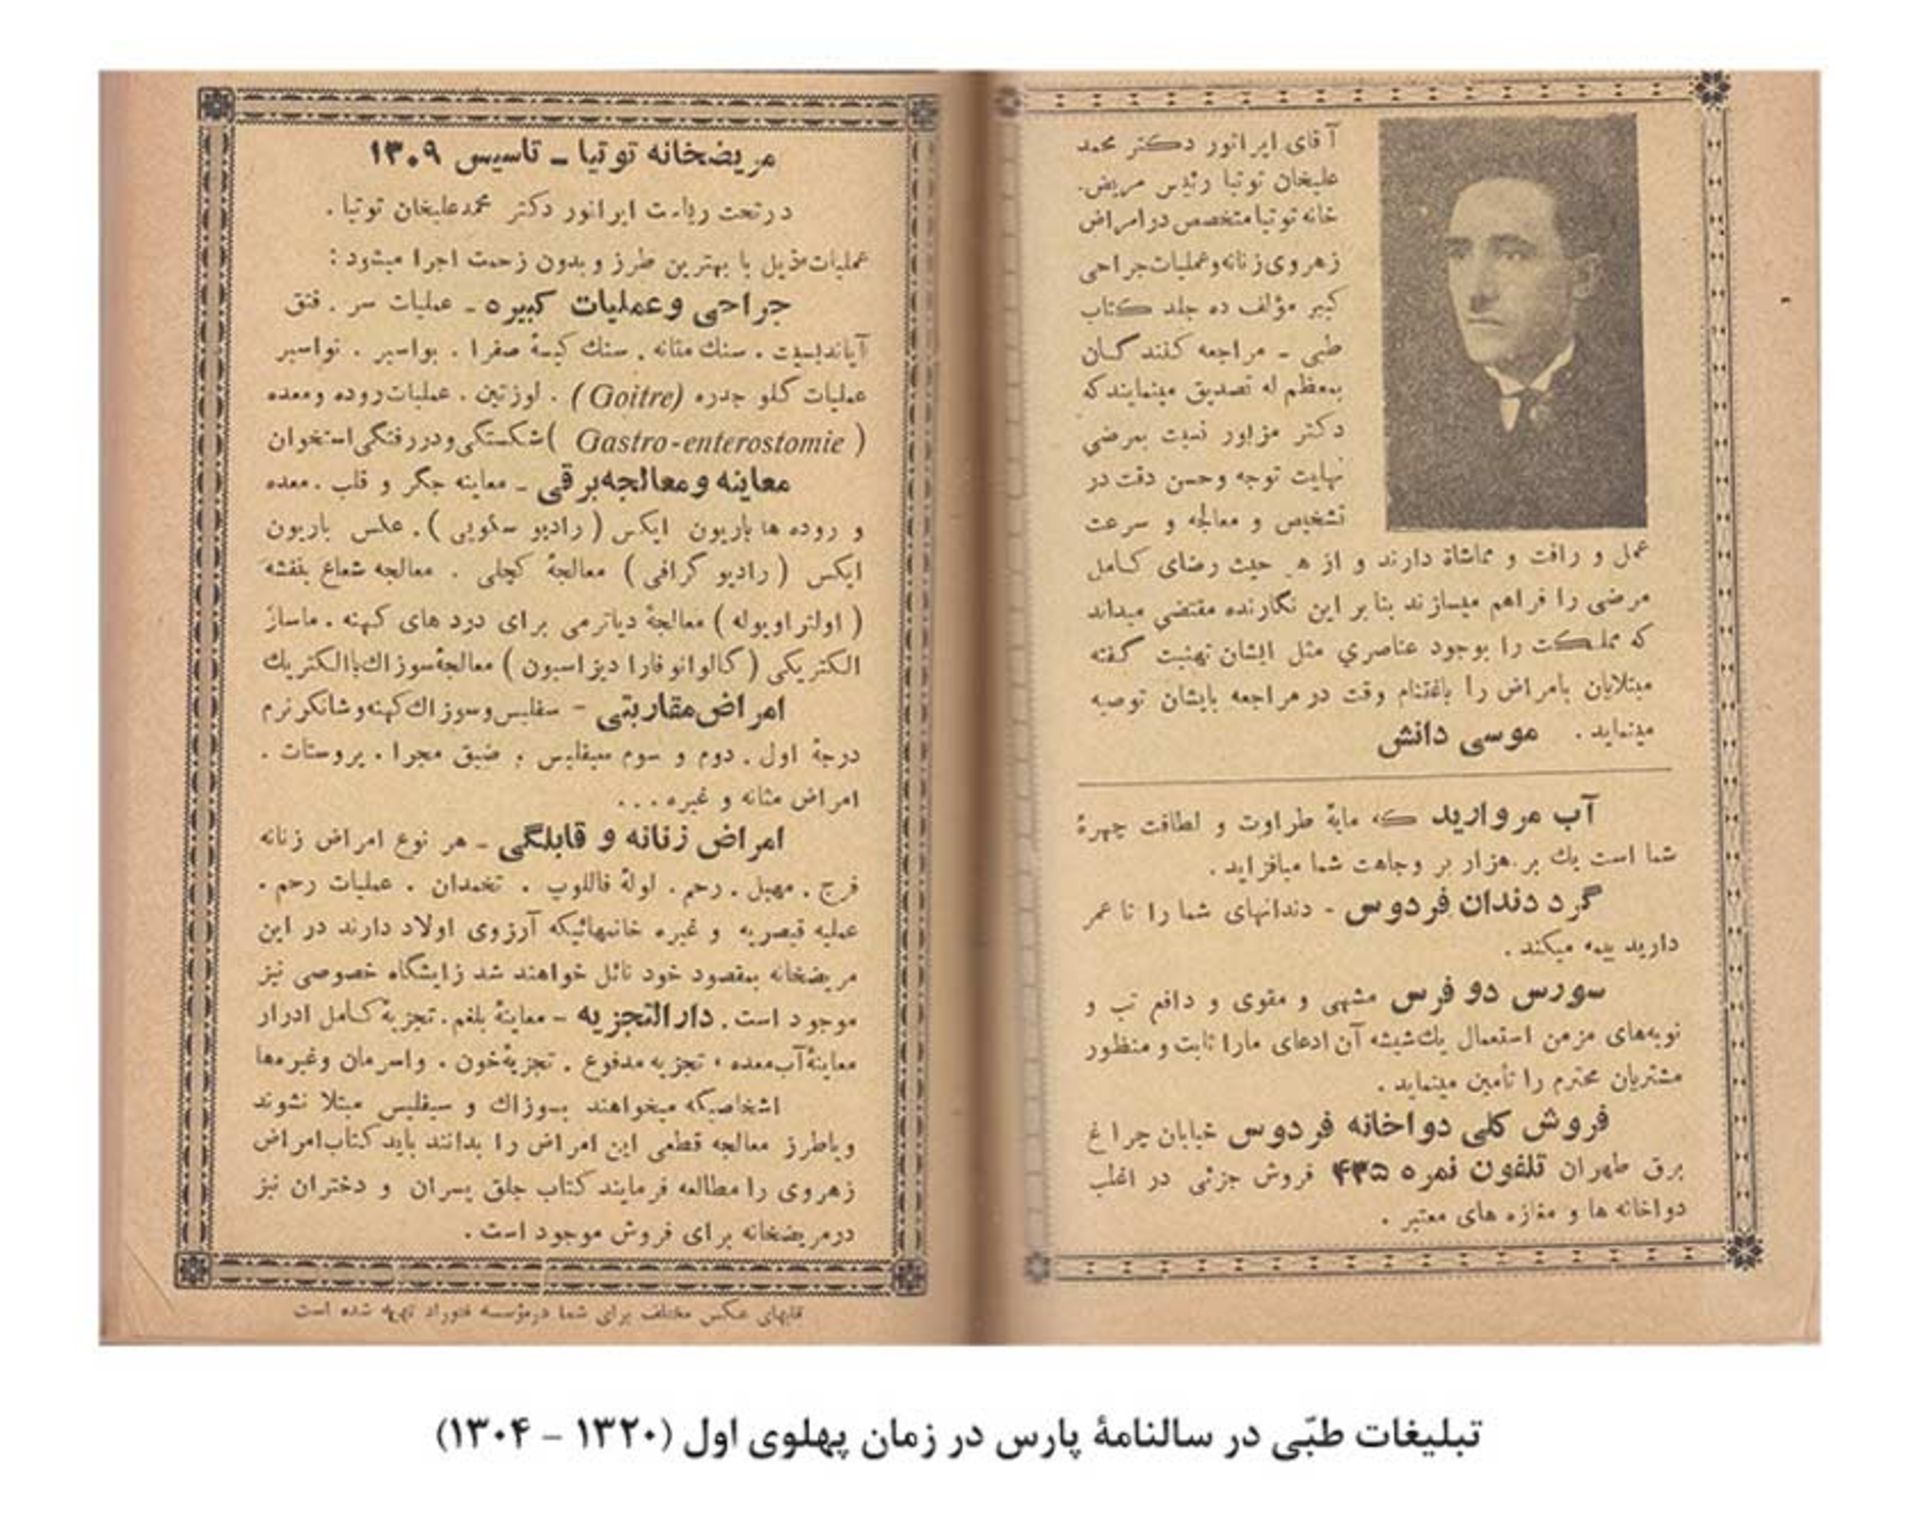 آقای ایرانور دکتر محمد
علیخان توتیا رئیس مریض-
خانه توتیا متخصص در امراض
زهروی زنانه و عملیات جراحی
کبیر مؤلف ده جلد کتاب
طبی - مراجعه کنندگان
بمعظم له تصدیق مینمایند که
دکتر مزبور نسبت بمرضی
نهایت توجه وحسن دقت در
تشخیص و معالجه و سرعت
عمل و رافت و مماشاة دارند و از هر حیث رضای کامل
مرضی را فراهم میسازند بنا بر این نگارنده مقتضی میداند
که مملکت را بوجود عناصری مثل ایشان تهنیت گفته
مبتلایان بامراض را باغتنام وقت در مراجعه بایشان توصیه
مینماید . موسی دانش
آب مروارید که مایهٔ طراوت و لطافت چهرهٔ
شما است یك بر هزار بر وجاهت شما میافزاید .
گرد دندان فردوس - دندانهای شما را تا عمر
دارید بیمه میکند .
سورس دو فرس مشهی و مقوی و دافع تب و
نوبه‌های مزمن استعمال یك شیشه آن ادعای مارا ثابت و منظور
مشتریان محترم را تأمین مینماید .
فروش کلی دواخانه فردوس خیابان چراغ
برق طهران تلفون نمره ۴۳۵ فروش جزئی در اغلب
دواخانه ها و مغازه های معتبر .
مریضخانه توتیا ـ تاسیس ۱۳۰۹
در تحت ریاست ایرانور دکتر محمدعلیخان توتیا .
عملیات مذیل با بهترین طرز و بدون زحمت اجرا میشود :
جراحی و عملیات کبیره ـ عملیات سر . فتق
آپاندیسیت . سنك مثانه . سنك کیسهٔ صفرا . بواسیر . نواسیر
عملیات گلو جدره (Goitre) . لوزتین . عملیات روده و معده
( Gastro-enterostomie ) شکستگی و دررفتگی استخوان
معاینه و معالجه برقی ـ معاینه جگر و قلب . معده
و روده ها باریون ایکس ( رادیو سکوپی ) . عکس باریون
ایکس ( رادیو گرافی ) معالجهٔ کچلی . معالجه شعاع بنفشه
( اولتراویوله ) معالجهٔ دیاترمی برای درد های کهنه . ماساژ
الکتریکی ( گالوانو فارا دیزاسیون ) معالجهٔ سوزاك با الکتریك
امراض مقاربتی - سفلیس و سوزاك کهنه و شانکر نرم
درجهٔ اول . دوم و سوم سیفلیس . ضیق مجرا . پروستات .
امراض مثانه و غیره ...
امراض زنانه و قابلگی ـ هر نوع امراض زنانه
فرج . مهبل . رحم . لولهٔ فاللوپ . تخمدان . عملیات رحم .
عملیه قیصریه و غیره خانمهائیکه آرزوی اولاد دارند در این
مریضخانه بمقصود خود نائل خواهند شد زایشگاه خصوصی نیز
موجود است . دارالتجزیه - معاینهٔ بلغم . تجزیهٔ کامل ادرار
معاینهٔ آب معده . تجزیه مدفوع . تجزیهٔ خون . واسرمان وغیره‌ها
اشخاصیکه میخواهند بسوزاك و سیفلیس مبتلا نشوند
ویاطرز معالجه قطعی این امراض را بدانند باید کتاب امراض
زهروی را مطالعه فرمایند کتاب جلق پسران و دختران نیز
درمریضخانه برای فروش موجود است .
قابهای عکس مختلف برای شما درمؤسسه تهیه شده است
تبلیغات طبّی در سالنامهٔ پارس در زمان پهلوی اول (۱۳۲۰ – ۱۳۰۴)